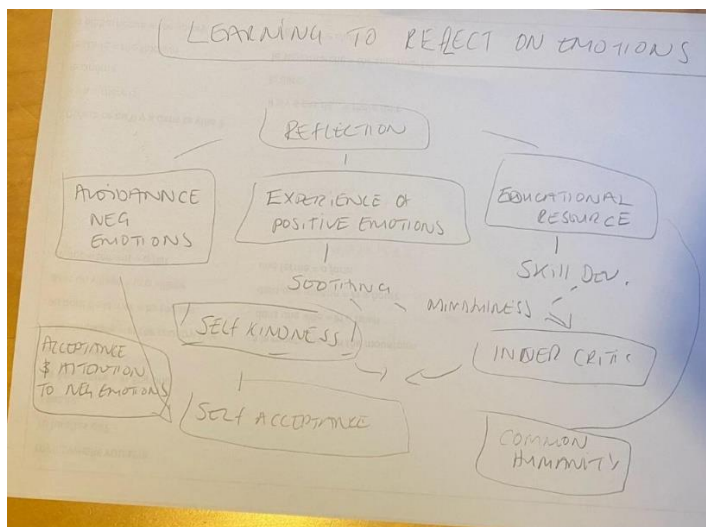 LEARNING TO REFLECT ON EMOTIONS
REFLECTION
AVOIDANNCE
NEG
EMOTIONS
EXPERIENCE of
POSITIVE EMOTIONS
EDUCATIONAL
RESOURCE
SOOTHING
SKILL DEV.
SELF KINDNESS
INNER CRITIC
ACCEPTANCE
& ATTENTION
TO NEG EMOTIONS
SELF ACCEPTANCE
COMMON
HUMANITY